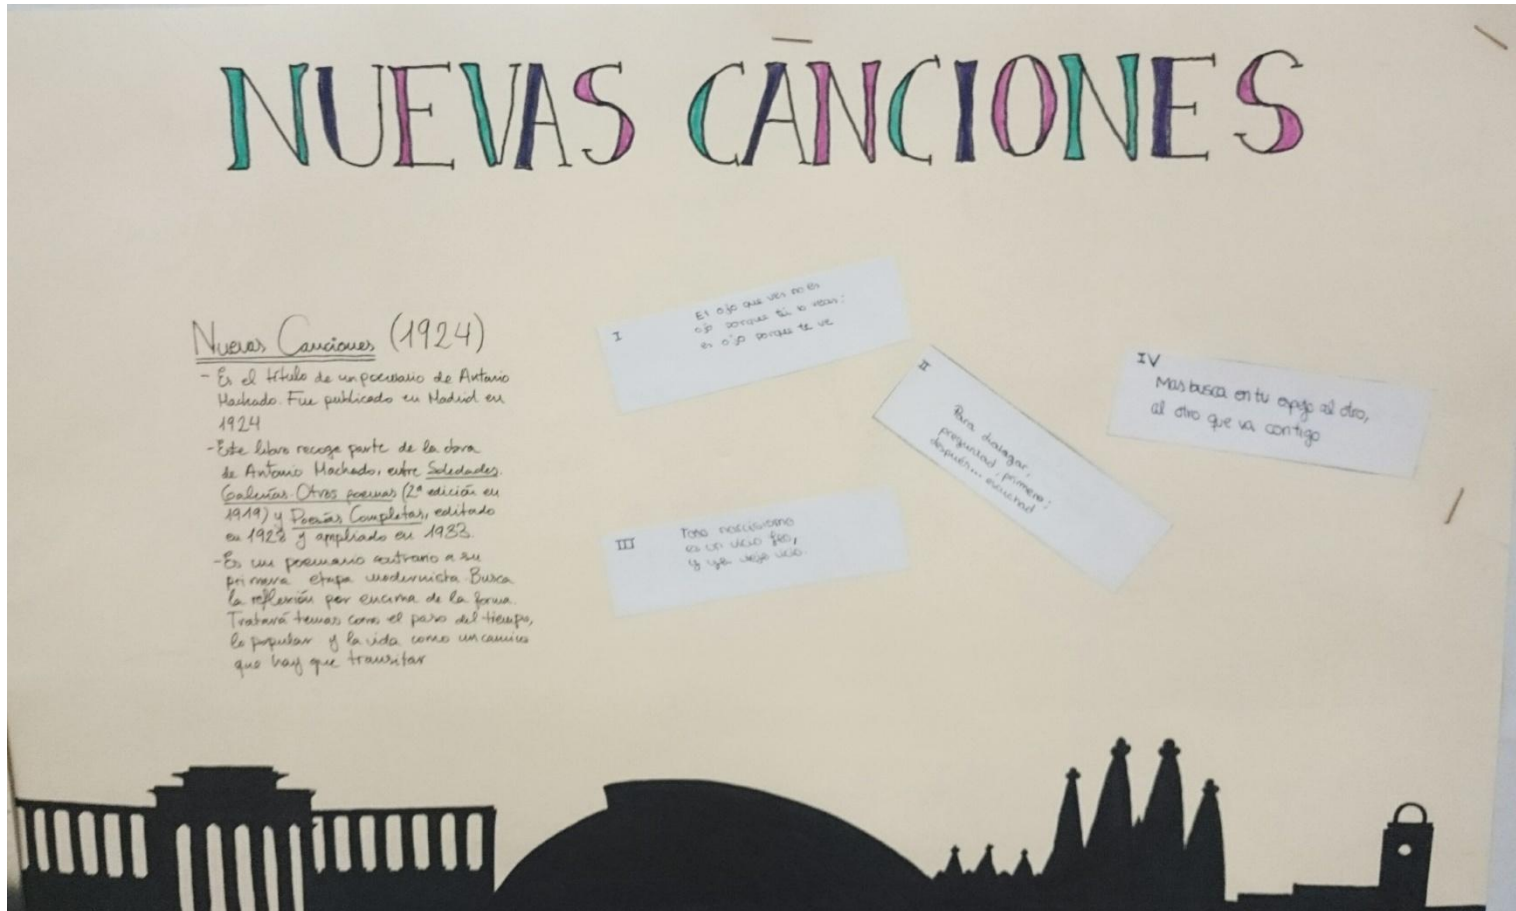 NUEVAS CANCIONES
Nuevas Canciones (1924)
- Es el título de un poemario de Antonio
Machado. Fue publicado en Madrid en
1924
- Este libro recoge parte de la obra
de Antonio Machado, entre Soledades.
Galerías. Otros poemas (2ª edición en
1919) y Poesías Completas, editado
en 1928 y ampliado en 1933.
- Es un poemario contrario a su
primera etapa modernista. Busca
la reflexión por encima de la forma.
Tratará temas como el paso del tiempo,
lo popular y la vida como un camino
que hay que transitar
I
El ojo que ves no es
ojo porque tú lo veas;
es ojo porque te ve
II
Para dialogar,
preguntad, primero;
después... escuchad
III
Todo narcisismo
es un vicio feo,
y ya viejo vicio.
IV
Mas busca en tu espejo al otro,
al otro que va contigo